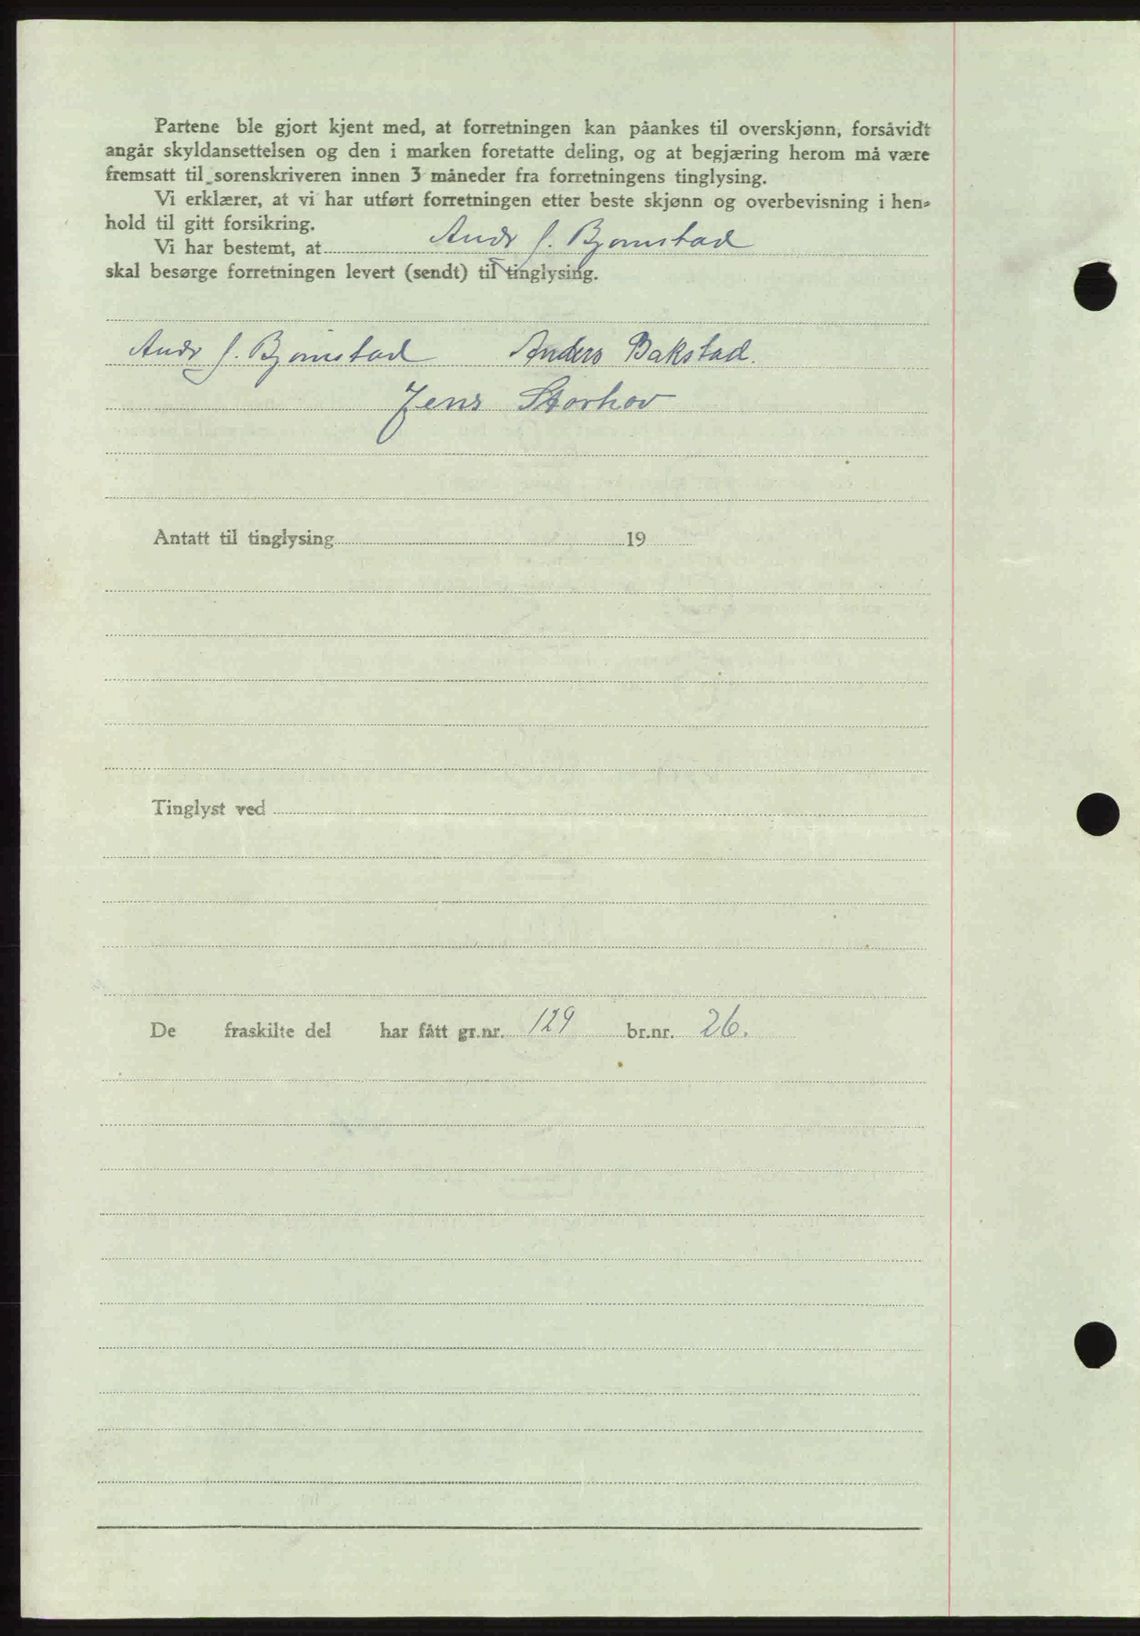 Partene ble gjort kjent med, at forretningen kan påankes til overskjønn, forsåvidt
angår skyldansettelsen og den i marken foretatte deling, og at begjæring herom må være
fremsatt til sorenskriveren innen 3 måneder fra forretningens tinglysing.
Vi erklærer, at vi har utført forretningen etter beste skjønn og overbevisning i hen-
hold til gitt forsikring.
Vi har bestemt, at Andr J. Bjørnstad
skal besørge forretningen levert (sendt) til tinglysing.
Andr J. Bjørnstad Anders Bakstad.
Jens Storhov
Antatt til tinglysing 19
Tinglyst ved
De fraskilte del har fått gr.nr. 129 br.nr. 26.